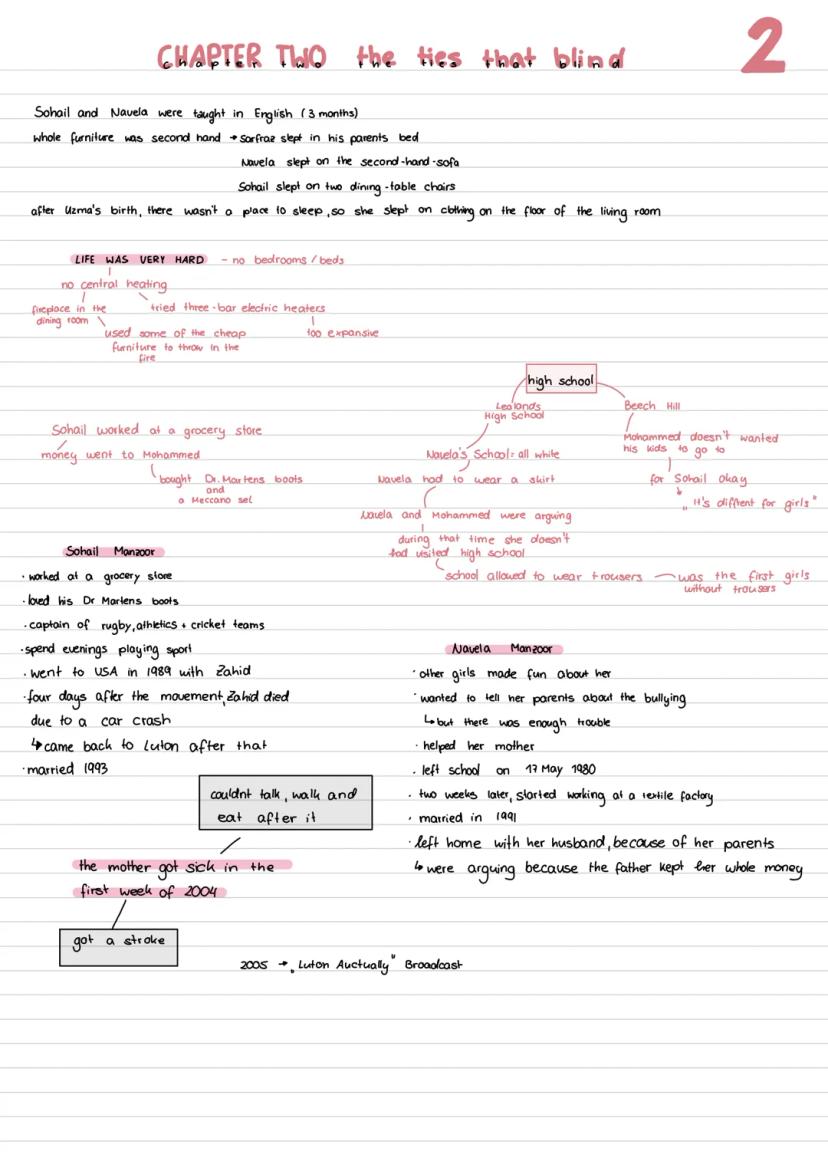 2
CHAPTER TWO the ties that blind
chapter two the ties that blind
Sohail and Navela were taught in English (3 months)
whole furniture was second hand → Sarfraz slept in his parents bed
Navela slept on the second-hand-sofa
Sohail slept on two dining-table chairs
after Uzma's birth, there wasn't a place to sleep, so she slept on clothing on the floor of the living room
LIFE WAS VERY HARD - no bedrooms / beds
no central heating
fireplace in the
dining room
tried three-bar electric heaters
used some of the cheap
furniture to throw in the
fire
too expansive
high school
Lealands
High School
Beech Hill
Sohail worked at a grocery store
money went to Mohammed
bought Dr. Martens boots
and
a Meccano set
Navela's School: all white
Navela had to wear a skirt
Navela and Mohammed were arguing
during that time she doesn't
had visited high school
school allowed to wear trousers
was the first girls
without trousers
Mohammed doesn't wanted
his kids to go to
for Sohail okay
„It's diffrent for girls"
Sohail Manzoor
· worked at a grocery store
· loved his Dr Martens boots
· captain of rugby, athletics + cricket teams
· spend evenings playing sport
· went to USA in 1989 with Zahid
· four days after the movement, Zahid died
due to a car crash
↳ came back to Luton after that
· married 1993
Navela Manzoor
· other girls made fun about her
· wanted to tell her parents about the bullying
↳ but there was enough trouble
· helped her mother
· left school on 17 May 1980
· two weeks later, started working at a textile factory
· married in 1991
· left home with her husband, because of her parents
↳ were arguing because the father kept her whole money
couldnt talk, walk and
eat after it
the mother got sick in the
first week of 2004
got a stroke
2005 → „Luton Auctually" Broadcast